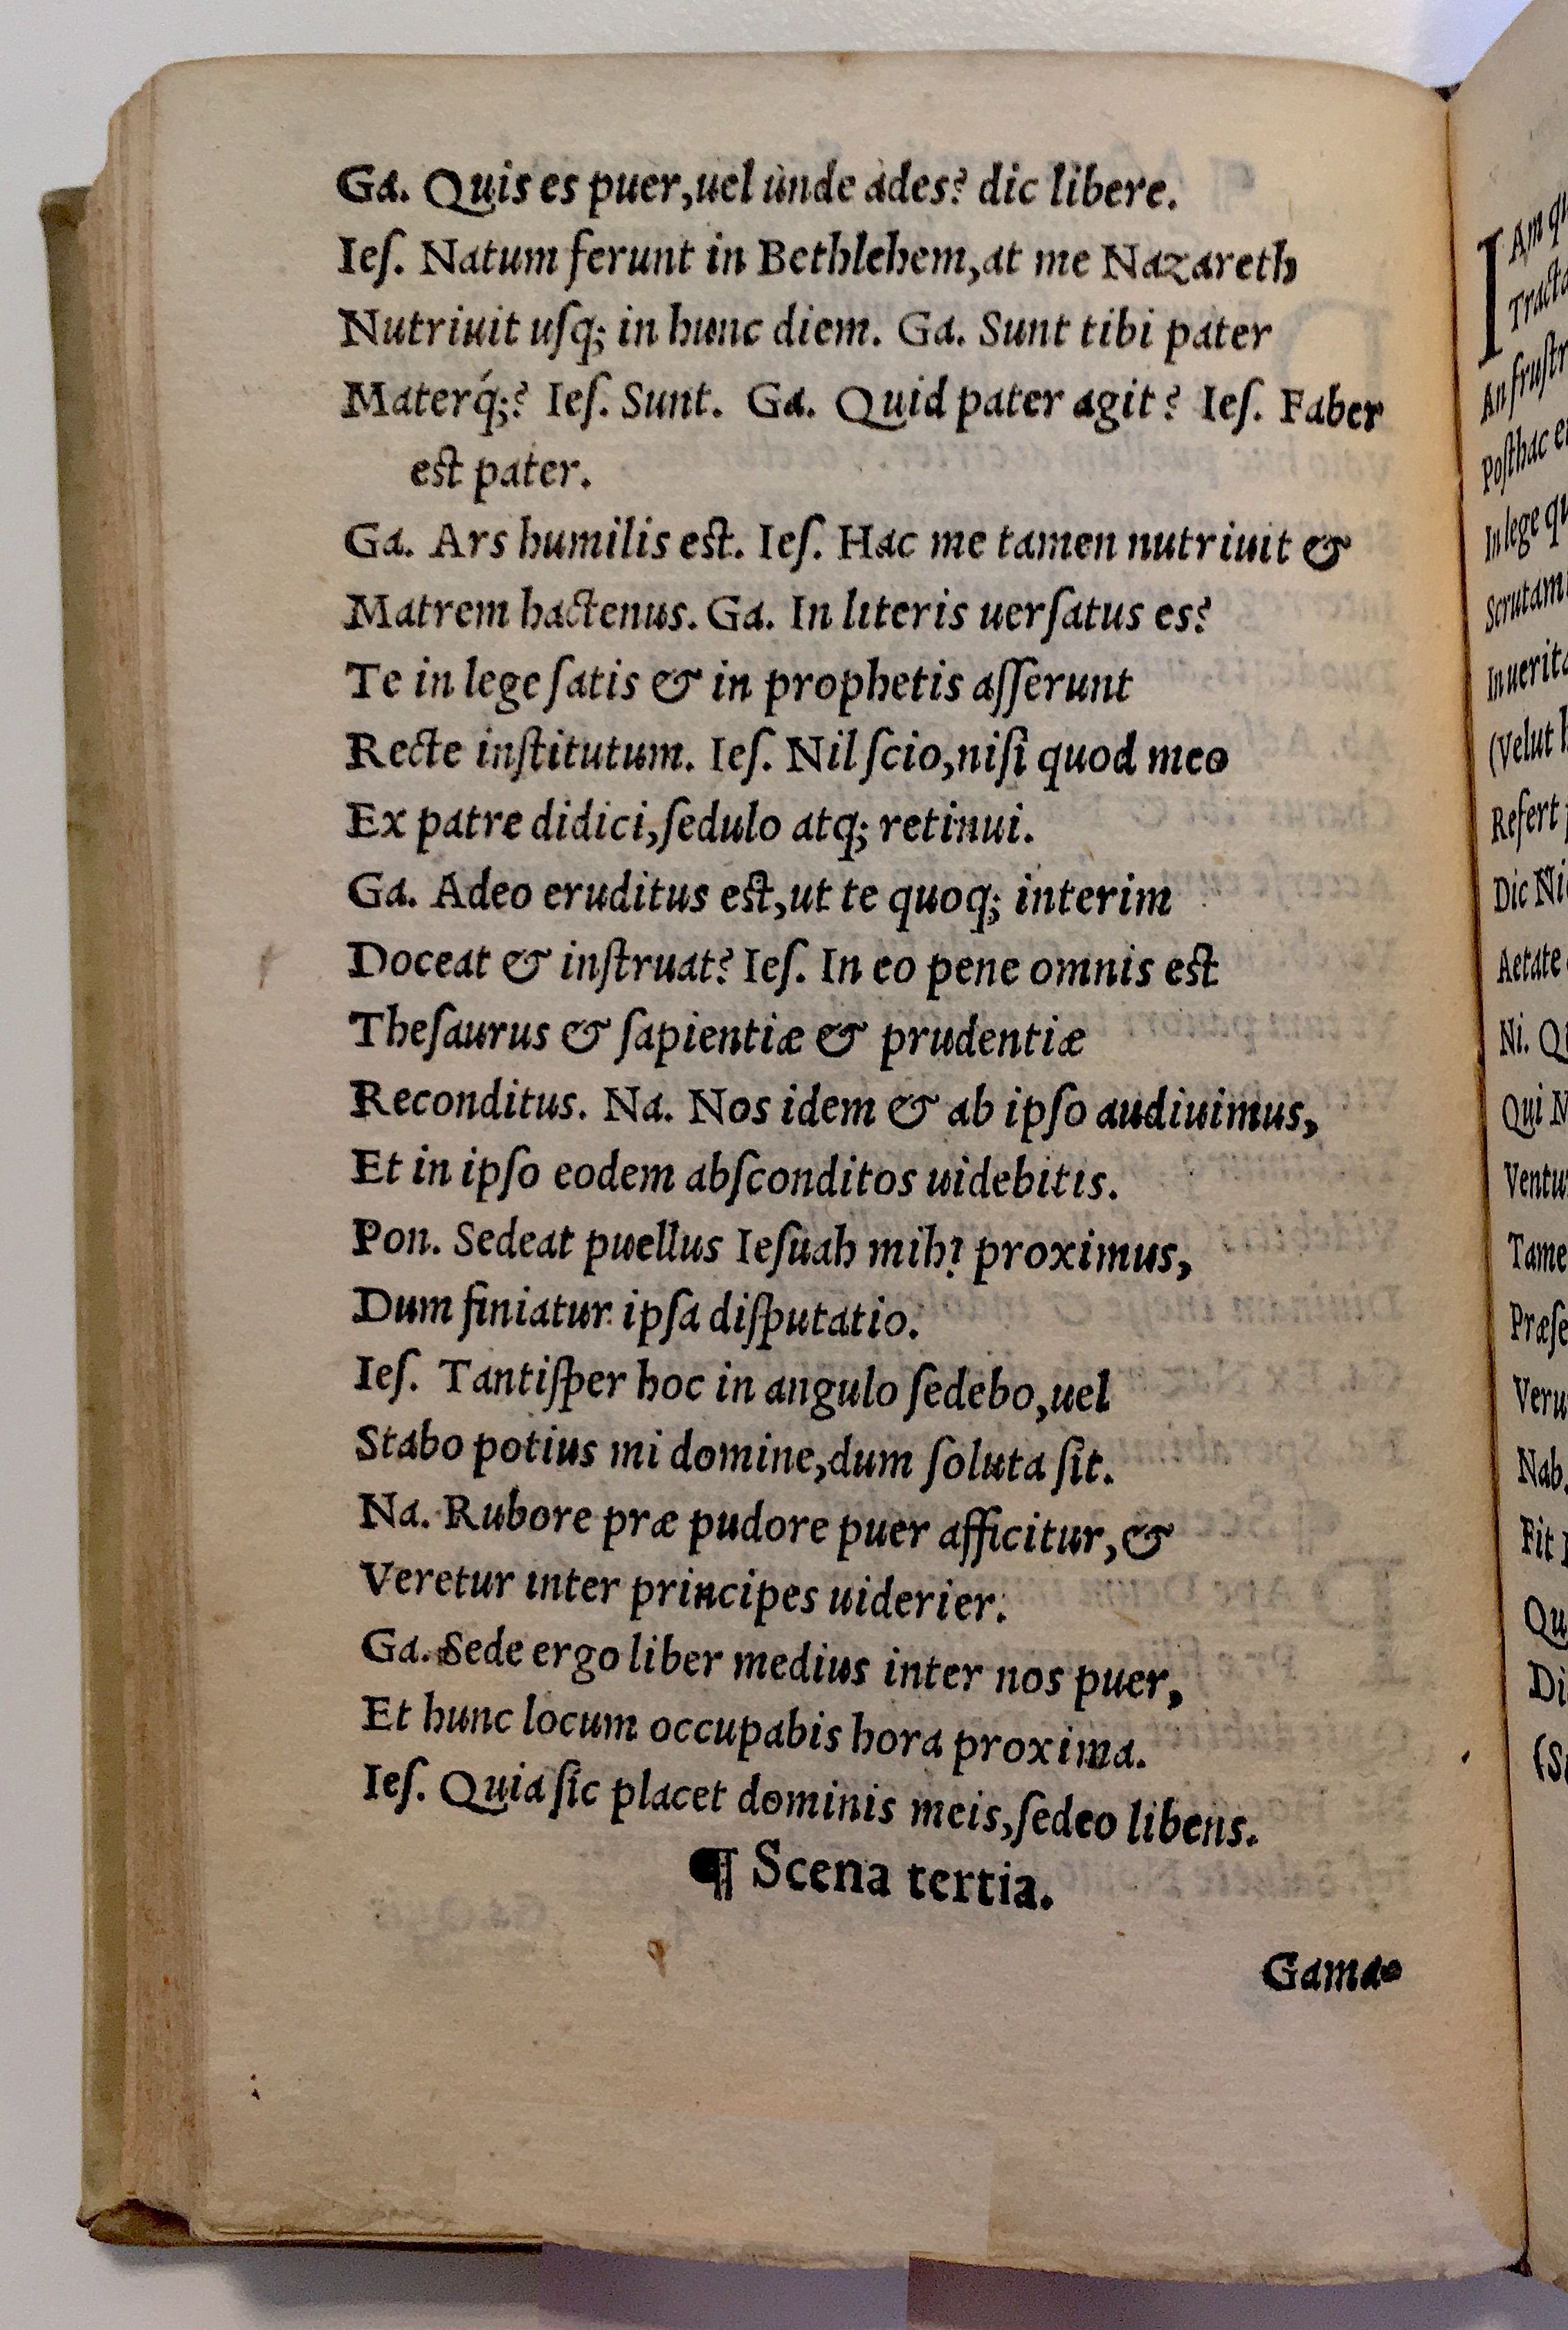 Ga. Quis es puer,uel ùnde ades? dic libere.
Ieſ. Natum ferunt in Bethlehem,at me Nazareth
Nutriuit uſq; in hunc diem. Ga. Sunt tibi pater
Materq́;? Ieſ. Sunt. Ga. Quid pater agit? Ieſ. Faber
est pater.
Ga. Ars humilis est. Ieſ. Hac me tamen nutriuit &
Matrem hactenus. Ga. In literis uerſatus es?
Te in lege ſatis & in prophetis aſſerunt
Recte inſtitutum. Ieſ. Nil ſcio,niſi quod meo
Ex patre didici,ſedulo atq; retinui.
Ga. Adeo eruditus est,ut te quoq; interim
Doceat & inſtruat? Ieſ. In eo pene omnis est
Theſaurus & ſapientiæ & prudentiæ
Reconditus. Na. Nos idem & ab ipſo audiuimus,
Et in ipſo eodem abſconditos uidebitis.
Pon. Sedeat puellus Ieſuah mihi proximus,
Dum finiatur ipſa diſputatio.
Ieſ. Tantiſper hoc in angulo ſedebo,uel
Stabo potius mi domine,dum ſoluta ſit.
Na. Rubore præ pudore puer afficitur,&
Veretur inter principes uiderier.
Ga. Sede ergo liber medius inter nos puer,
Et hunc locum occupabis hora proxima.
Ieſ. Quia ſic placet dominis meis,ſedeo libens.
¶ Scena tertia.
Gama-
I Am
An
Poſthac
In lege
(Velut
Refert
Dic
Aetate
Ni.
Qui
Nab.
Fit